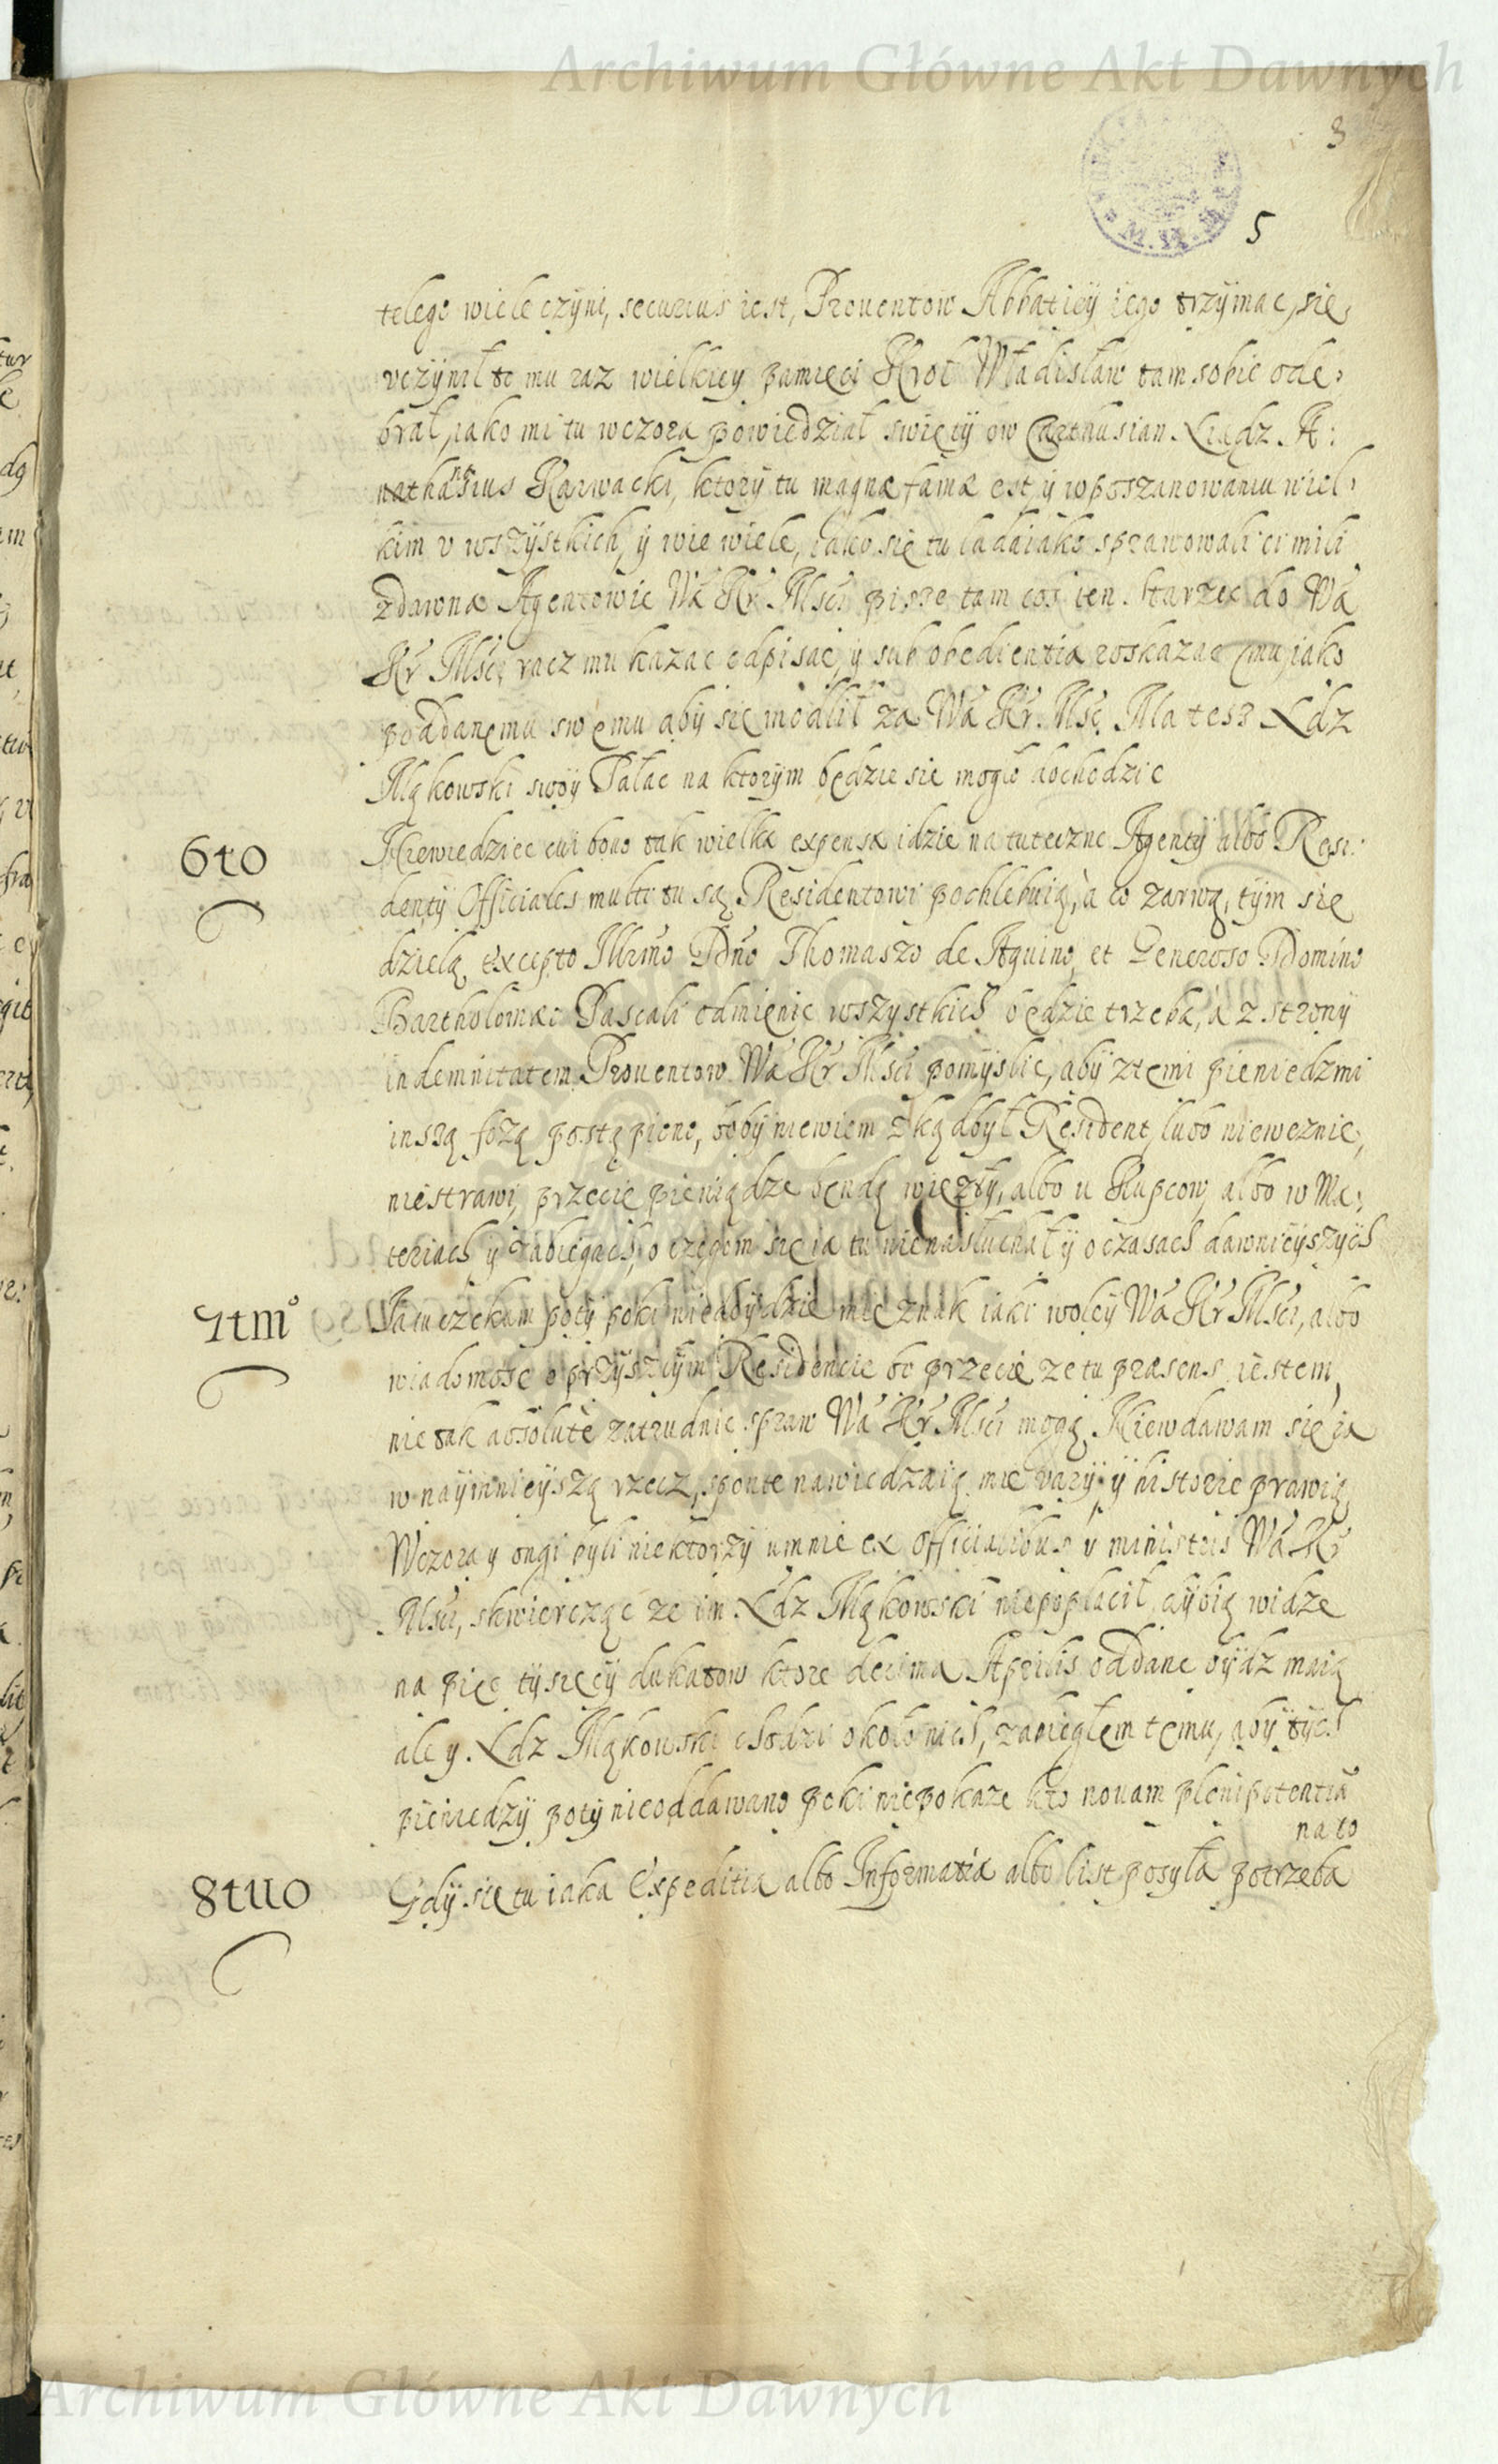 Archiwum Główne Akt Dawnych
3
5
telego wiele czÿni, securius iest, Prouentow Abbatiÿ iego trzÿmac, sie,
vczÿnił to mu raz wielkieÿ pamięci Krol Władisław tam sobie ode,
brał, iako mi tu wczora powiedział swięÿ ow Carthusian Xiądz A:
nathasius Karwacki, ktorÿ tu magnæ famæ est, ÿ w poszanowaniu wiel,
kim v wszÿstkich, ÿ wie wiele, iako się tu ladaiako sprawowali ci mili
zdawna Agentowie Wa Kr Msci pisze tam cos ten starzec do Wa
Kr Msci, racz mu kazac odpisac, ÿ sub obedientia roskazac mu, iako
poddanemu swemu abÿ się modlił za Wa Kr. Msc. Ma tesz Xdz
Mąkowski swoÿ Pałac na ktorÿm będzie sie mogło dochodzic
6to
Niewiedziec cui bono tak wielka expensa idzie na tuteczne Agentÿ albo Resi:
dentÿ Officiales multi tu są Residentowi pochlebuią, a co zarwą, tÿm się
dzielą, excepto Illrmo Dno Thomaszo de Aquino, et Generoso Domino
Bartholomæo Pascali odmienic wszÿstkich będzie trzeba, a z stronÿ
indemnitatem Prouentow Wa Kr Msci pomÿslic, abÿ z temi pieniedzmi
inszą fozą postąpiono, bobÿ niewiem zkądbÿł Resident, lubo nieweznie,
niestrawi, przecie pieniądze bendą więzłÿ, albo u Kupcow, albo w Ma,
teriach ÿ zabiegach, o czegom się ia tu nienasłuchał ÿ o czasach dawnieÿszÿch
7tmo
Ja tu czekam potÿ poki niedoÿdzie mie znak iaki woleÿ Wa Kr Msci, albo
wiadomosc o przÿszłÿm Residencie bo przecie ze tu præsens iestem,
nie tak absolute zatrudnic spraw Wa Kr Msci mogą. Niewdawam się ia
w naÿmnieÿszą rzecz, sponte nawiedzaią mie varÿ, ÿ historie prawią,
Wczora y ongi bÿli niektorzÿ u mnie ex officialibus ÿ ministris Wa Kr
Msci, skwiercząc ze im Xdz Mąkowski niepopłacił, dÿbią widze
na pięc tÿsięcÿ dukatow ktore decima Aprilis oddane bÿdz maią
ale y Xdz Mąkowski chodzi około nich, zabiegłem temu, abÿ tÿch
pieniedzÿ potÿ nieoddawano poki niepokaze kto nouam plenipotentia
na to
8tuo
Gdÿ się tu iaka Expeditia albo Informatia albo list posyła potrzeba
Archiwum Główne Akt Dawnych